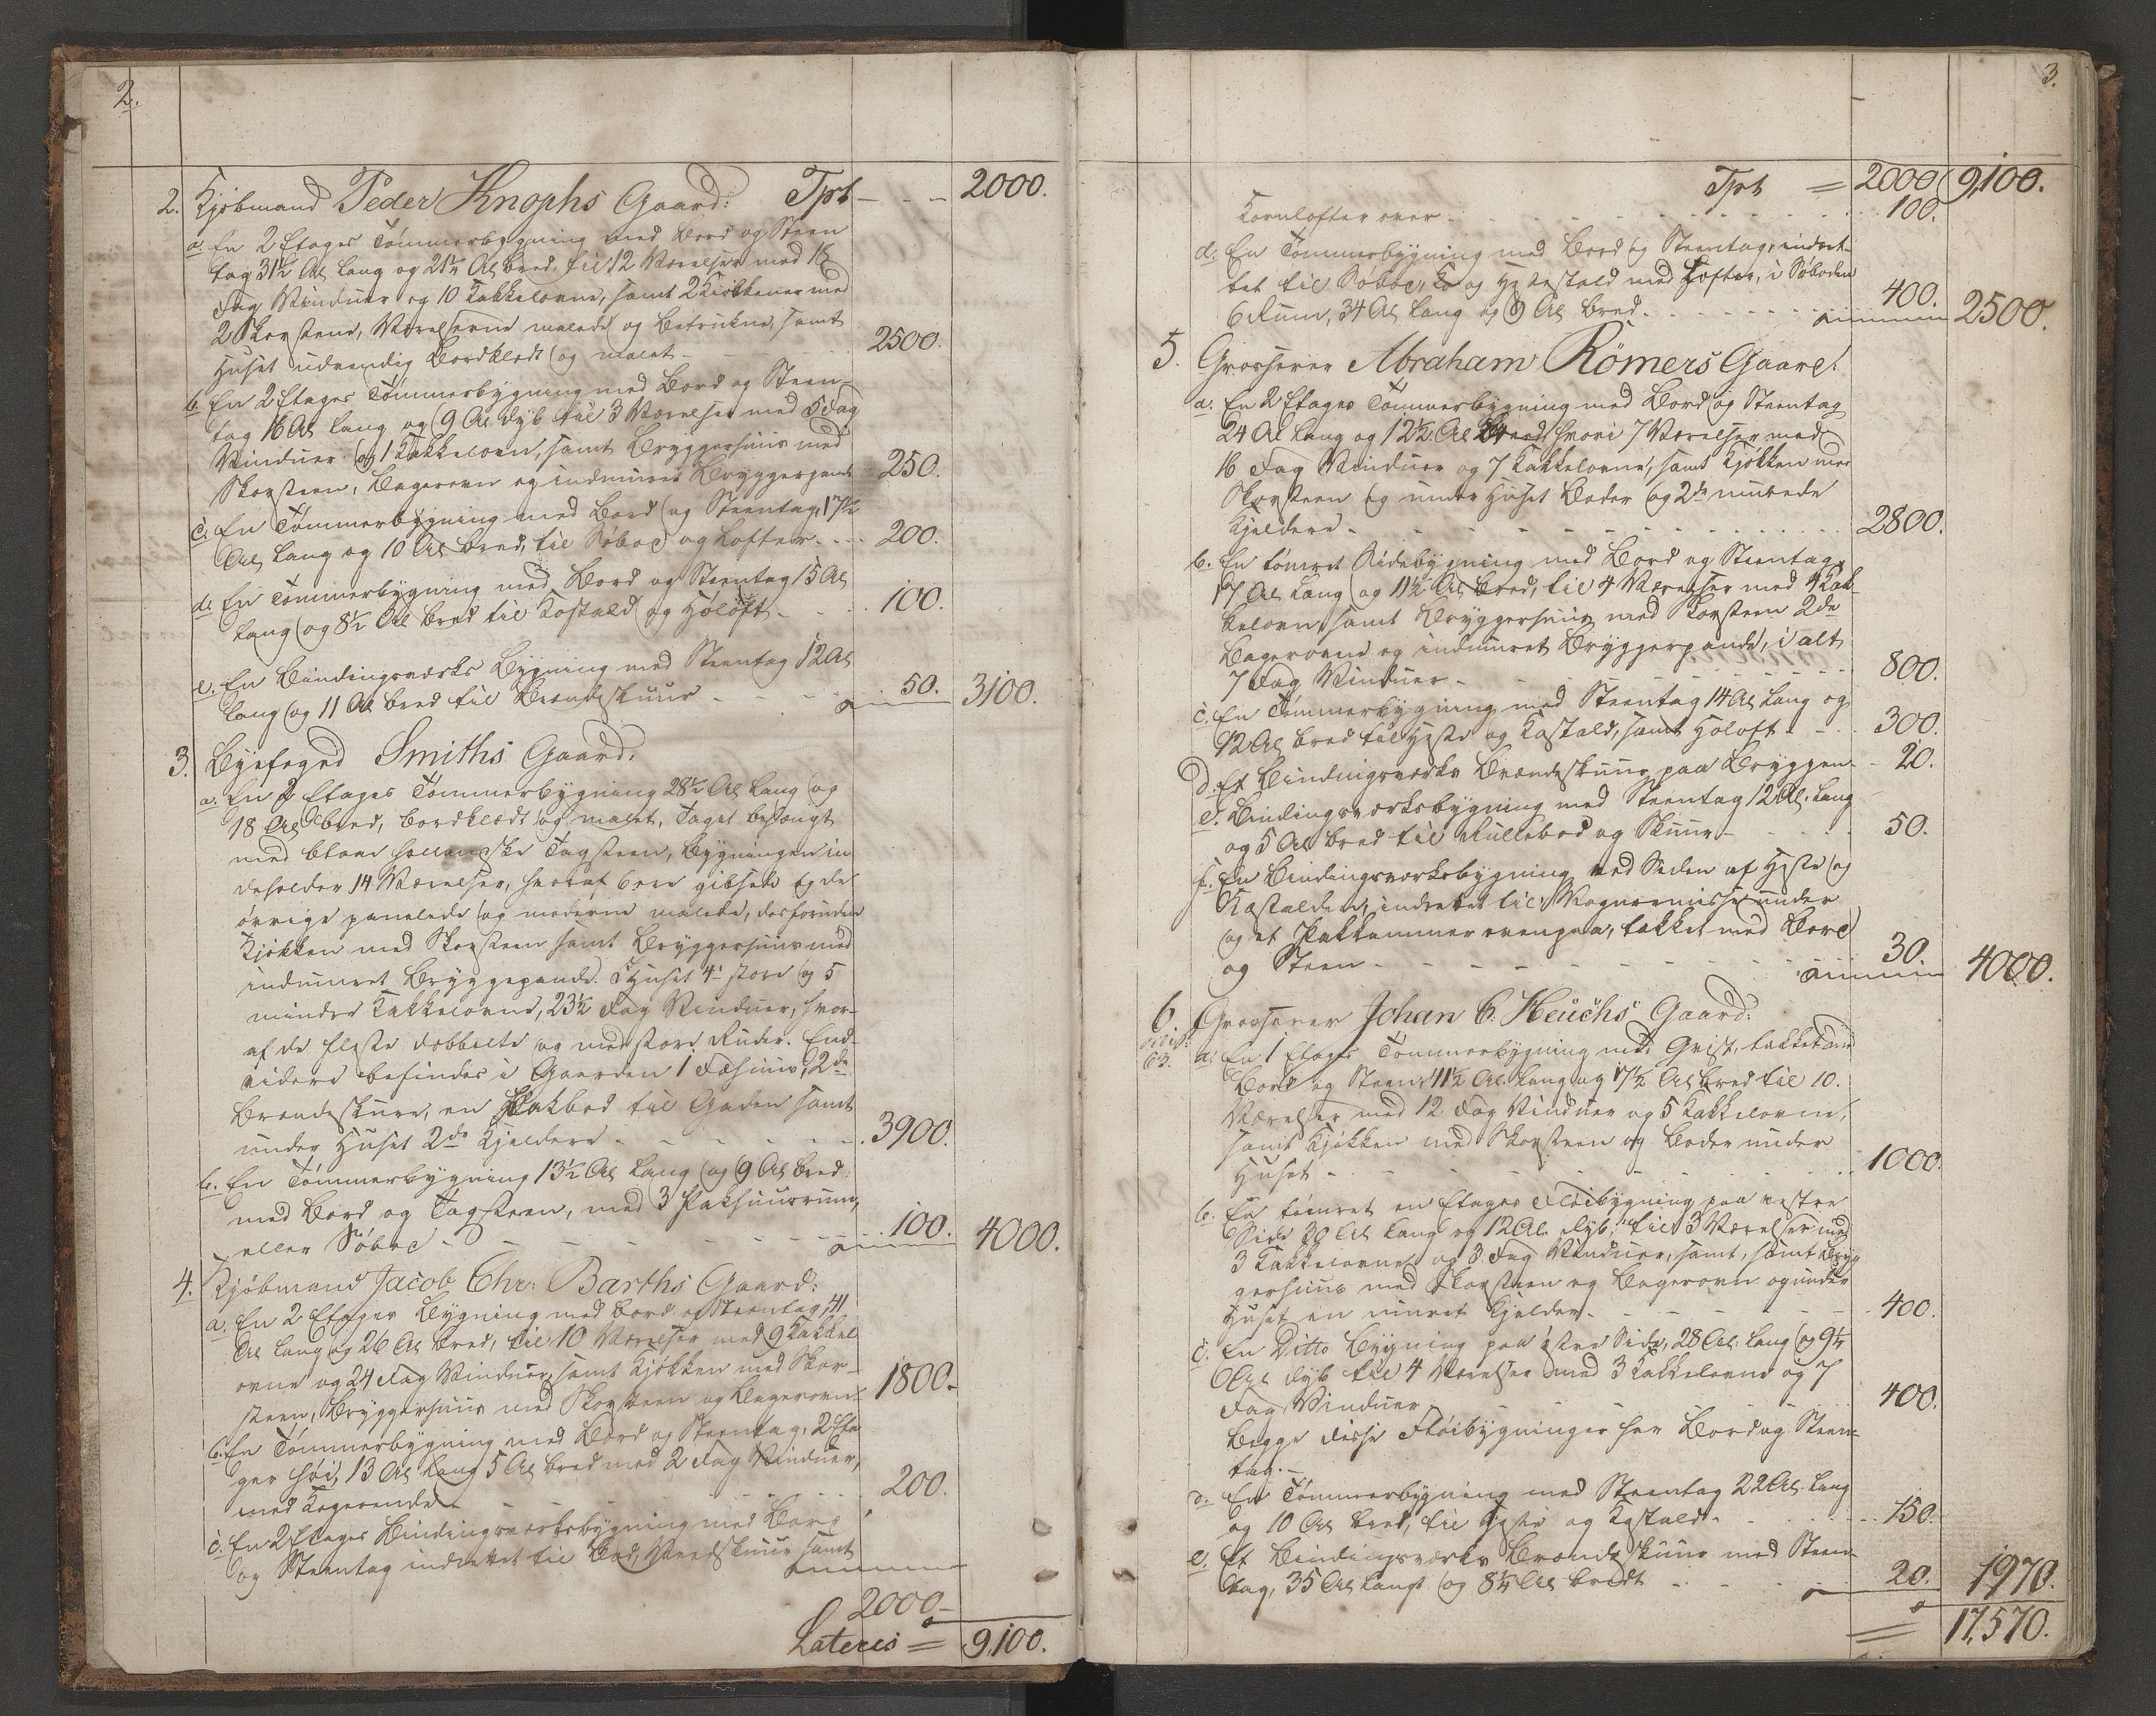 2.
Tpt - - - 2000.
2. Kjøbmand Peder Knophs Gaard:
a. En 2 Etages Tømmerbygning med Bord og Steen
tag 31½ Al lang og 21¼ Al bred, til 12 Værelser med 18
Fag Vinduer og 10 Kakkelovne, samt 2 Kiøkkener med
2 Skorstene, Værelserne malede og betrukne, samt
Huset udvendig bordklædt og malet - 2500.
b. En 2 Etages Tømmerbygning med Bord og Steen-
tag 16 Al lang og 9 Al dyb til 3 Værelser med 5 Fag
Vinduer og 1 Kakkelovn, samt Bryggerhuus med
Skorsteen, Bagerovn og indmuret Bryggerpande 250.
c. En Tømmerbygning med Bord og Steentag, 17½
Al lang og 10 Al bred, til Søbod og Lofter. - - 200.
d. En Tømmerbygning med Bord og Steentag 15 Al
lang og 8½ Al bred til Kostald og Høloft - - - 100.
e. En Bindingsværks Bygning med Steentag 12 Al
lang og 11 Al bred til Brændeskuur - - - 50. 3100.
3. Byefoged Smiths Gaard.
a. En 2 Etages Tømmerbygning 28½ Al lang og
18 Al bred, bordklædt og malet, Taget behængt
med blaae hollandske Tagsteen, Bygningen in
deholder 14 Værelser, hvoraf 6 ere gibsede og de
øvrige panelede og moderne malede, desforuden
Kjøkken med Skorsteen samt Bryggerhuus med
indmuret Bryggepande. I Huset 4 store og 5
mindre Kakkelovne, 23½ Fag Vinduer, hvor-
af de fleste dobbelte og med store Ruder. End-
videre befindes i Gaarden 1 Fæhuus, 2de
Brændeskure, en Pakbod til Gaden samt
under Huset 2de Kjeldere - - - - - 3900.
b. En Tømmerbygning 13½ Al lang og 9 Al bred
med Bord og Tagsteen, med 3 Pakhuusrum,
eller Søbod - - - - - - 100. 4000.
4. Kjøbmand Jacob Chr: Barths Gaard:
a. En 2 Etages Bygning med Bord og Steentag, 41
Al lang og 26 Al bred, til 10 Værelser med 9 Kakkel
ovne og 24 Fag Vinduer, samt Kjøkken med Skor-
steen, Bryggerhuus med Skorsteen og Bagerovn - 1800.
b. En Tømmerbygning med Bord og Steentag, 2 Eta
ger høi, 13 Al lang 5 Al bred med 2 Fag Vinduer,
med - - - 200.
c. En 2 Etages Bindingsværksbygning med Bord
og Steentag indrettet til Bod, Vedskuur samt
2000.
Lateris = 9,100.
3.
Tpt = 2000 9,100.
Kornlofter over - - - - - 100.
d. En Tømmerbygning med Bord og Steentag, indret-
tet til Søbod, Ko og Hestestald med Lofter, i Søboden
6 Rum, 34 Al lang og 9 Al bred - - - - 400. 2500.
5. Grosserer Abraham Römers Gaard.
a. En 2 Etages Tømmerbygning med Bord og Steentag
24 Al lang og 12½ Al bred hvori 7 Værelser med
16 Fag Vinduer og 7 Kakkelovne, samt Kjøkken med
Skorsteen og under Huset Boder og 2de murede
Kjeldere - - - - - - 2800.
b. En tømret Sidebygning med Bord og Steentag,
17 Al lang og 11½ Al bred, til 4 Værelser med 4 Kak-
kelovne samt Bryggerhuus med Skorsteen 2de
Bagerovne og indmuret Bryggerpande, i alt
7 Fag Vinduer - - - - - 800.
c. En Tømmerbygning med Steentag 14 Al lang og
12 Al bred til Heste og Kostald, samt Høloft - - - 300.
d. Et Bindingsværks Brændeskuur paa Bryggen - 20.
e. Bindingsværksbygning med Steentag 12 Al. lang
og 5 Al bred til Rullebod og Skuur - - - 50.
f. En Bindingsværksbygning ved Siden af Heste og
Kostalden, indrettet til Vognremisse under
og et Pakkammer ovenpaa, tækket med Bord
og Steen - - - - - - 30. 4000.
6. Grosserer Johan C. Heuchs Gaard:
63.
a. En 1 Etages Tømmerbygning med Qvist, tækket med
Bord og Steen, 41½ Al lang og 17½ Al bred til 10.
Værelser med 12 Fag Vinduer og 5 Kakkelovne,
samt Kjøkken med Skorsteen og Boder under
Huset - - - - - - 1000.
b. En tømret en Etages Fløibygning paa vestre
Side 30 Al lang og 12 Al. dyb, til 3 Værelser med
3 Kakkelovne og 3 Fag Vinduer, samt, samt Bryg
gerhuus med Skorsteen og Bagerovn og under
Huset en muret Kjelder - - - - 400.
c. En Ditto Bygning paa østre Side, 28 Al. lang og 9¼
Al dyb til 4 Værelser med 3 Kakkelovne og 7
Fag Vinduer - 400.
Begge disse Fløibygninger har Bord og Steen-
tag. -
d. En Tømmerbygning med Steentag 22 Al. lang
og 10 Al bred, til Heste og Kostald - - - 150.
e. Et Bindingsværks Brændeskuur med Steen-
tag, 35 Al langt og 8¼ Al bredt - - - 20. 1970.
= 17,570.